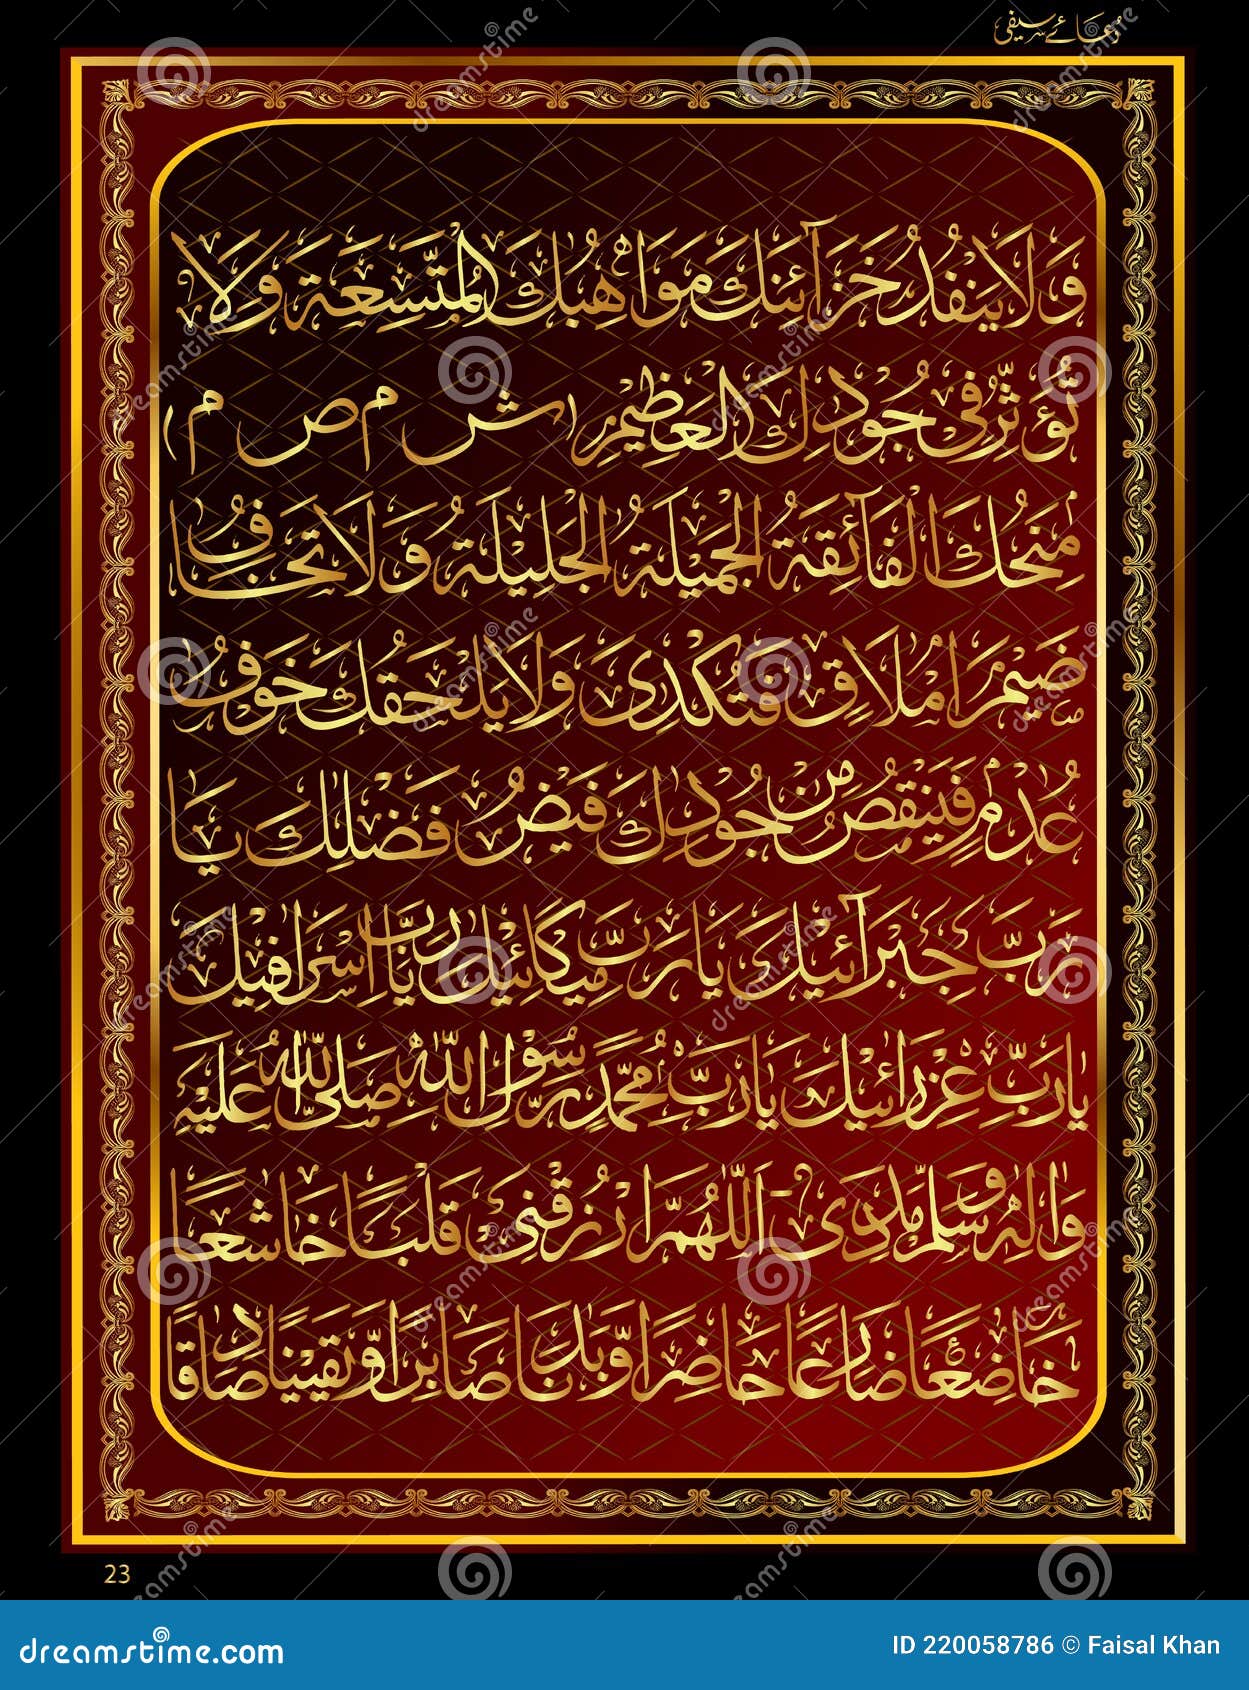 دُعائے سیفی
وَلَا يَنْفُدُ خَزَآئِنُكَ مَوَاهِبُكَ الْمُتَّسِعَةَ وَلَا
تُؤَثِّرُ فِیْ جُوْدِكَ الْعَظِيْمِ (ش م ص م)
مِنَحُكَ الْفَآئِقَةُ الْجَمِيْلَةُ الْجَلِيْلَةُ وَلَا تَخَافُ
ضَيْمَ اِمْلَاقٍ فَتُكْدِیَ وَلَا يَلْحَقُكَ خَوْفُ
عُدْمٍ فَيَنْقُصُ مِنْ جُوْدِكَ فَيْضُ فَضْلِكَ يَا
رَبَّ جَبْرَآئِيْلَ يَا رَبَّ مِيْكَائِيْلَ يَا رَبَّ اِسْرَافِيْلَ
يَا رَبِّ عِزْرَائِيْلَ يَا رَبَّ مُحَمَّدٍ رَّسُوْلِ اللّٰهِ صَلَّی اللّٰهُ عَلَيْهِ
وَاٰلِهٖ وَسَلَّمَ اَللّٰهُمَّ ارْزُقْنِیْ قَلْبًا خَاشِعًا
خَاضِعًا ضَارِعًا حَاضِرًا وَّبَدَنًا صَابِرًا وَّيَقِيْنًا صَادِقًا
23
dreamstime.com
ID 220058786 © Faisal Khan